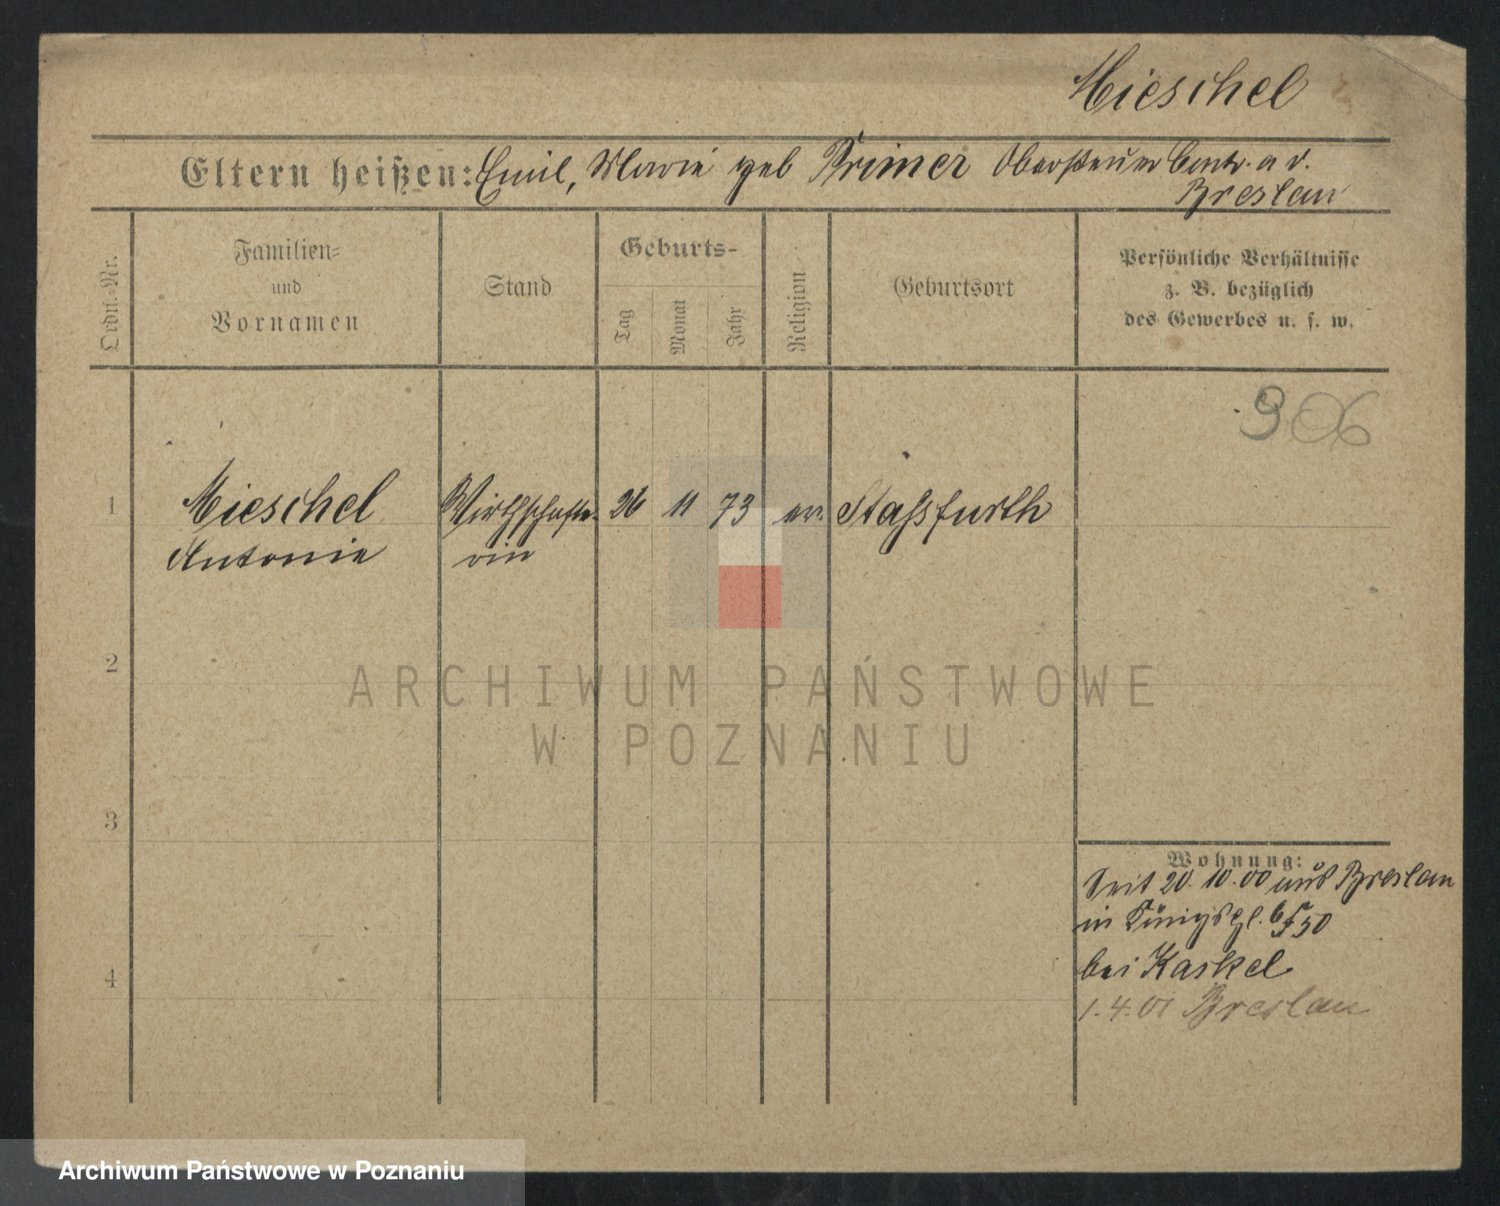 Mieschel
Eltern heißen: Emil, Marie geb Primer Obersteuer Contr. a. d.
Breslau
Ordn.-Nr.
Familien-
und
Vornamen
Stand
Geburts-
Tag
Monat
Jahr
Religion
Geburtsort
Persönliche Verhältnisse
z. B. bezüglich
des Gewerbes u. s. w.
306
1 Mieschel Wirthschafte- 26 11 73 ev. Staßfurth
Antonie rin
2
ARCHIWUM PAŃSTWOWE
W POZNANIU
3
Wohnung:
Seit 20. 10. 00 aus Breslau
in Königspl. 6
bei Kaskel
4
1.4.01 Breslau
Archiwum Państwowe w Poznaniu